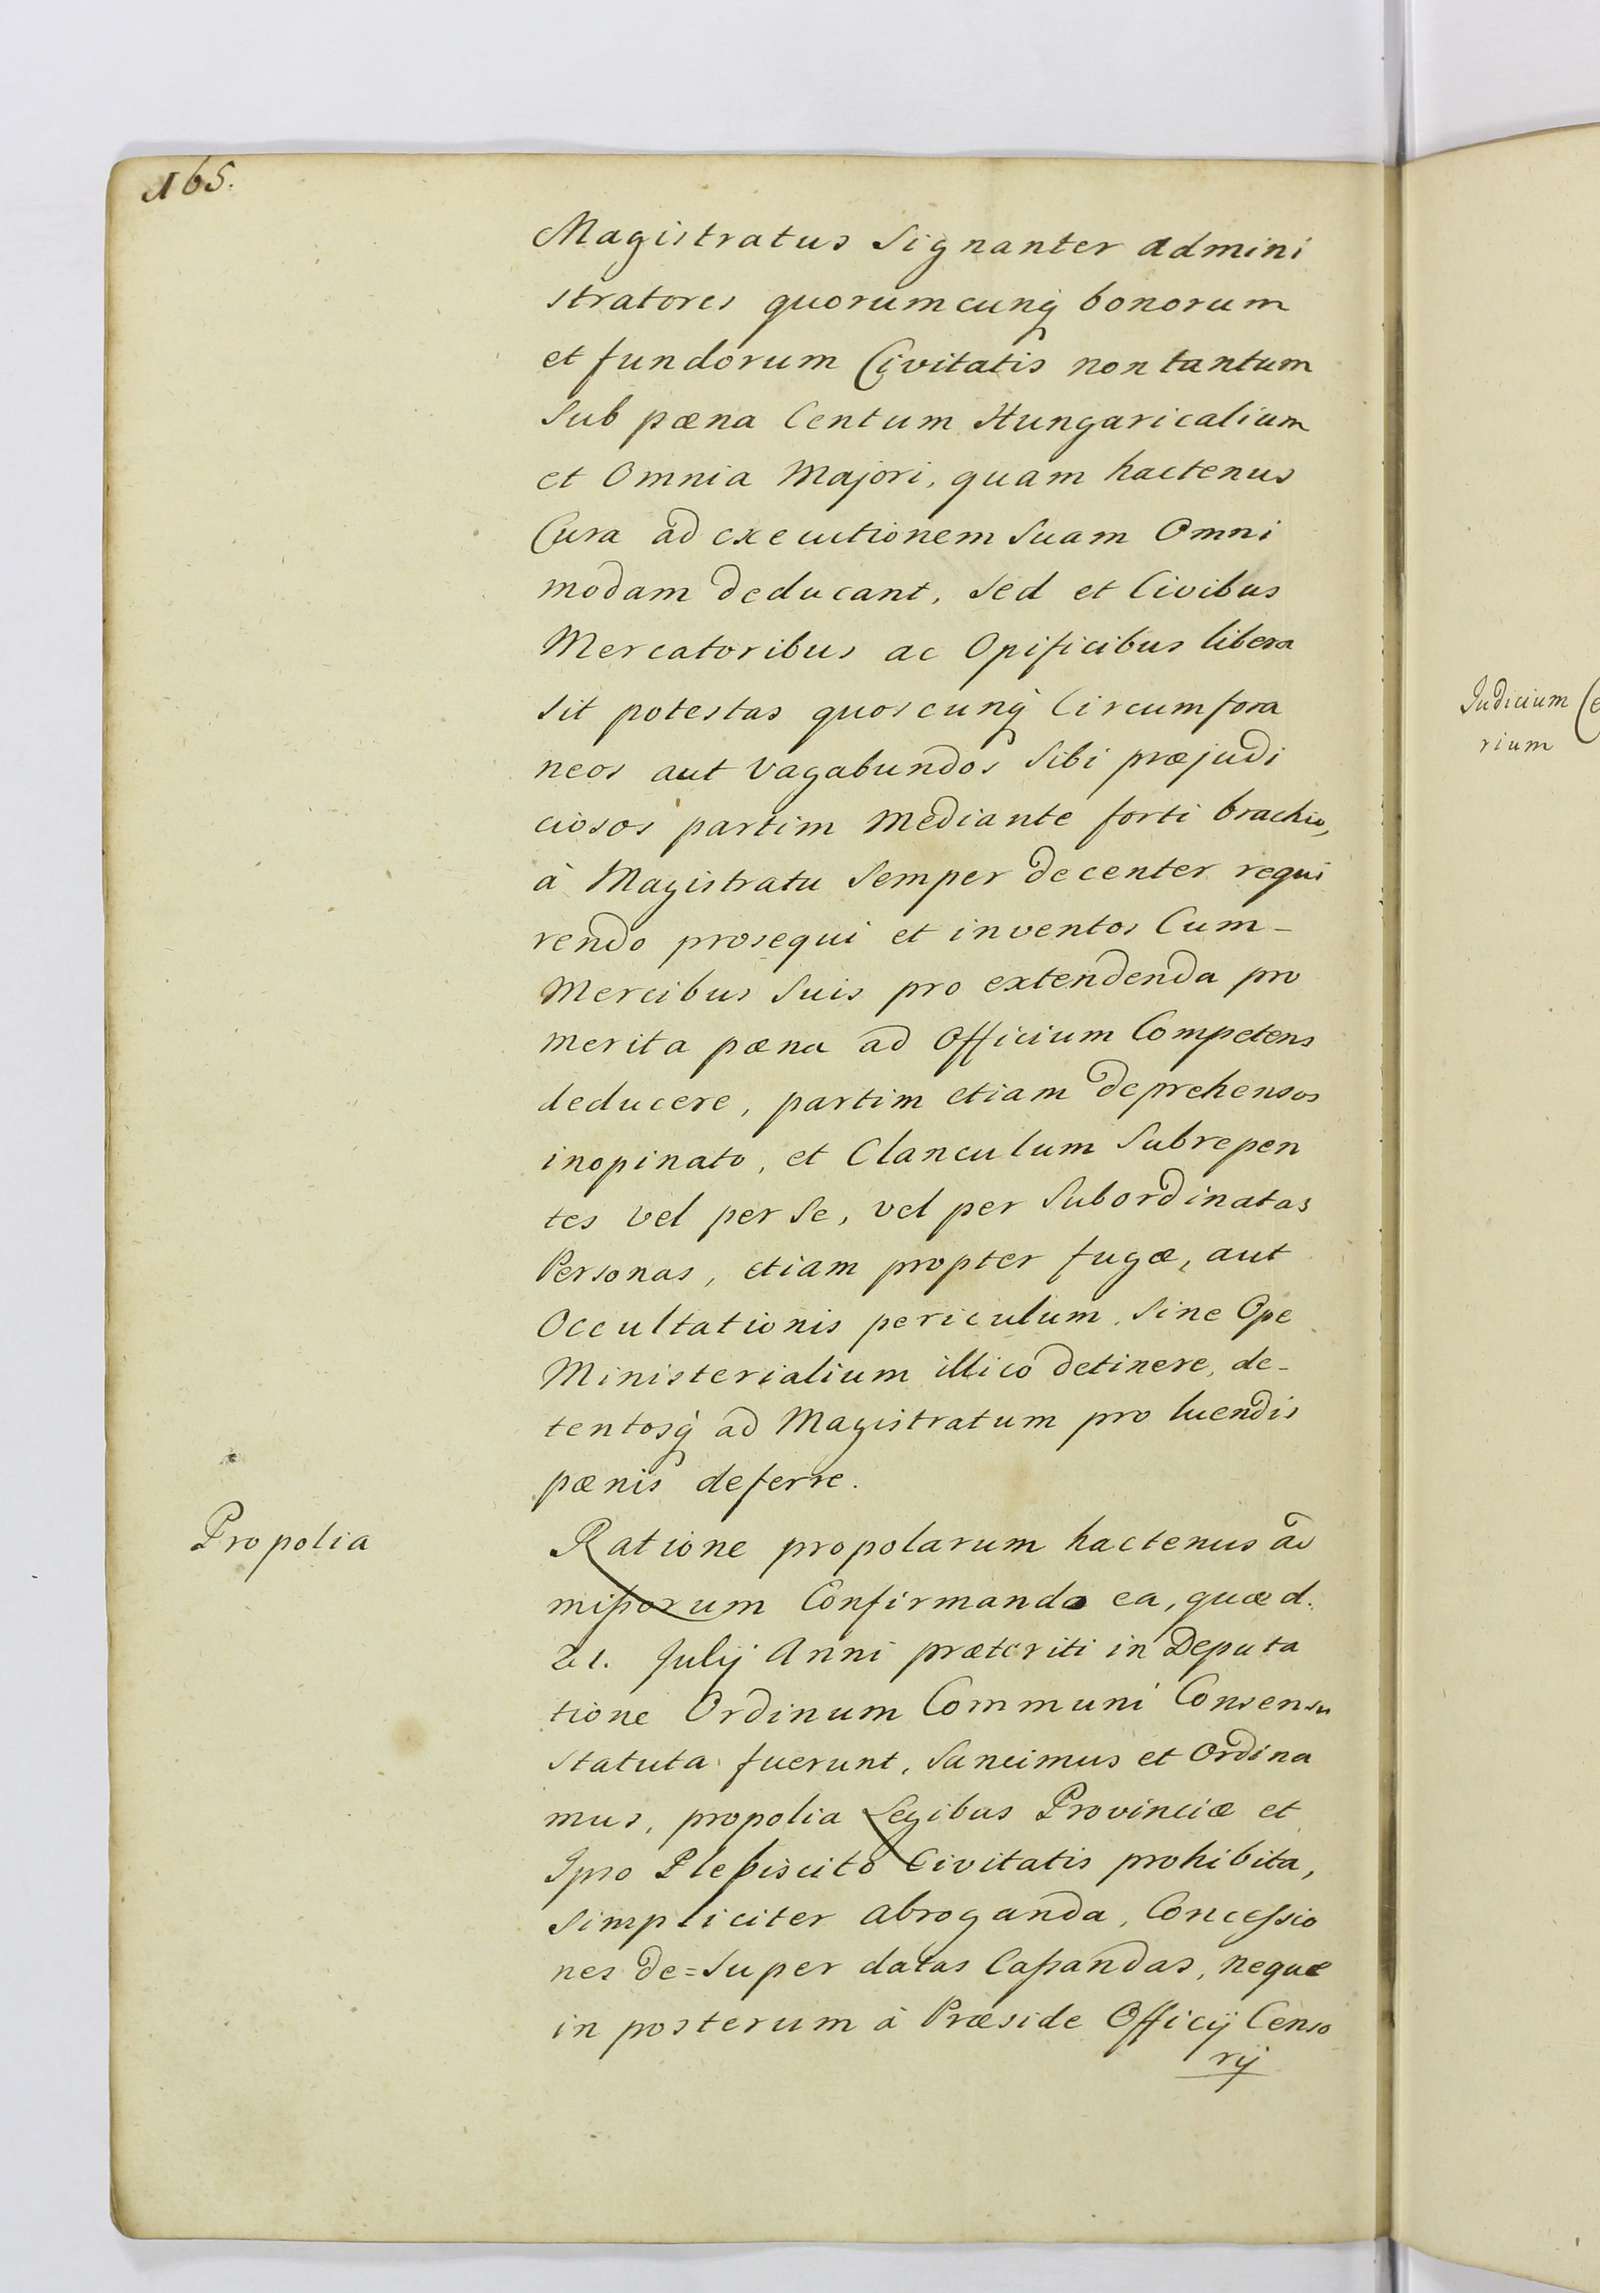 165.
Magistratus Signanter admini
stratores quorumcunq bonorum
et fundorum Civitatis non tantum
Sub pæna Centum Hungaricalium
et Omnia Majori, quam hactenus
Cura ad executionem Suam Omni
modam deducant, Sed et Civibus
Mercatoribus ac Opificibus libera
Sit potestas quoscunq Circumfora
neos aut Vagabundos Sibi præjudi
ciosos partim Mediante forti brachio,
à Magistratu Semper decenter requi
rendo prosequi et inventos Cum-
Mercibus Suis pro extendenda pro
merita pæna ad Officium Competens
deducere, partim etiam deprehensos
inopinato, et Clanculum Subrepen
tes vel per Se, vel per Subordinatas
Personas, etiam propter fugæ, aut
Occultationis periculum, Sine Ope
Ministerialium illico detinere, de-
tentosq ad Magistratum pro luendis
pænis deferre.
Propolia
Ratione propolarum hactenus ad
mißorum Confirmando ea, quæ d.
21. Julij Anni præteriti in Deputa
tione Ordinum Communi Consensu
Statuta fuerunt, Sancimus et Ordina
mus, propolia Legibus Provinciæ et
Ipso Plebiscito Civitatis prohibita,
Simpliciter abroganda, Conceßio
nes de=super datas Caßandas, neque
in posterum à Præside Officij Censo
rij
Judicium
rium